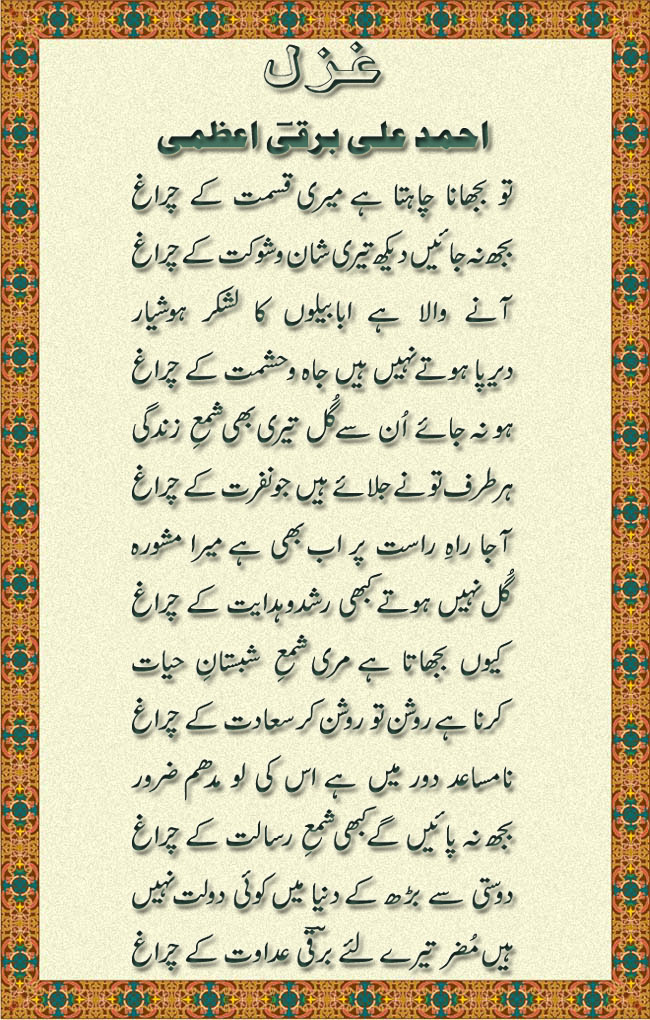 غزل
احمد علی برقیؔ اعظمی
تو بجھانا چاہتا ہے میری قسمت کے چراغ
بجھ نہ جائیں دیکھ تیری شان و شوکت کے چراغ
آنے والا ہے ابابیلوں کا لشکر ہوشیار
دیرپا ہوتے نہیں ہیں جاہ و حشمت کے چراغ
ہو نہ جائے اُن سے گُل تیری بھی شمعِ زندگی
ہر طرف تو نے جلائے ہیں جو نفرت کے چراغ
آجا راہِ راست پر اب بھی ہے میرا مشورہ
گُل نہیں ہوتے کبھی رشد و ہدایت کے چراغ
کیوں بجھاتا ہے مری شمعِ شبستانِ حیات
کرنا ہے روشن تو روشن کر سعادت کے چراغ
نامساعد دور میں ہے اس کی لو مدھم ضرور
بجھ نہ پائیں گے کبھی شمعِ رسالت کے چراغ
دوستی سے بڑھ کے دنیا میں کوئی دولت نہیں
ہیں مُضر تیرے لئے برقیؔ عداوت کے چراغ